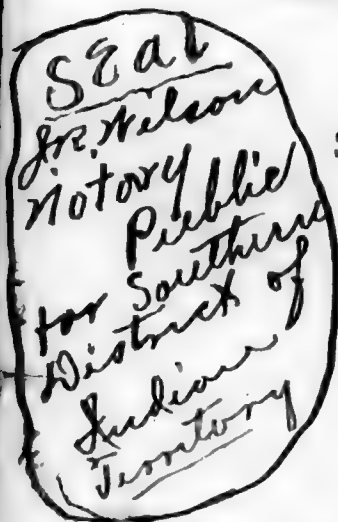 Seal
J.R. Wilson
Notory
Public
for Southern
District of
Indian
Territory